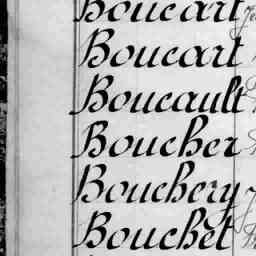 Boucart
Boucart
Boucault
Boucher
Bouchery
Bouchet